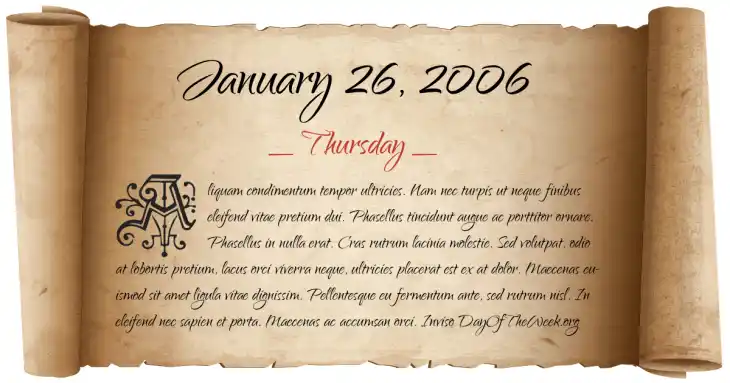 January 26, 2006
_ Thursday _
Aliquam condimentum tempor ultricies. Nam nec turpis ut neque finibus
eleifend vitae pretium dui. Phasellus tincidunt augue ac porttitor ornare.
Phasellus in nulla erat. Cras rutrum lacinia molestie. Sed volutpat, odio
at lobortis pretium, lacus orci viverra neque, ultricies placerat est ex at dolor. Maecenas eu-
ismod sit amet ligula vitae dignissim. Pellentesque eu fermentum ante, sed rutrum nisl. In
eleifend nec sapien et porta. Maecenas ac accumsan orci. Inviso DayOfTheWeek.org